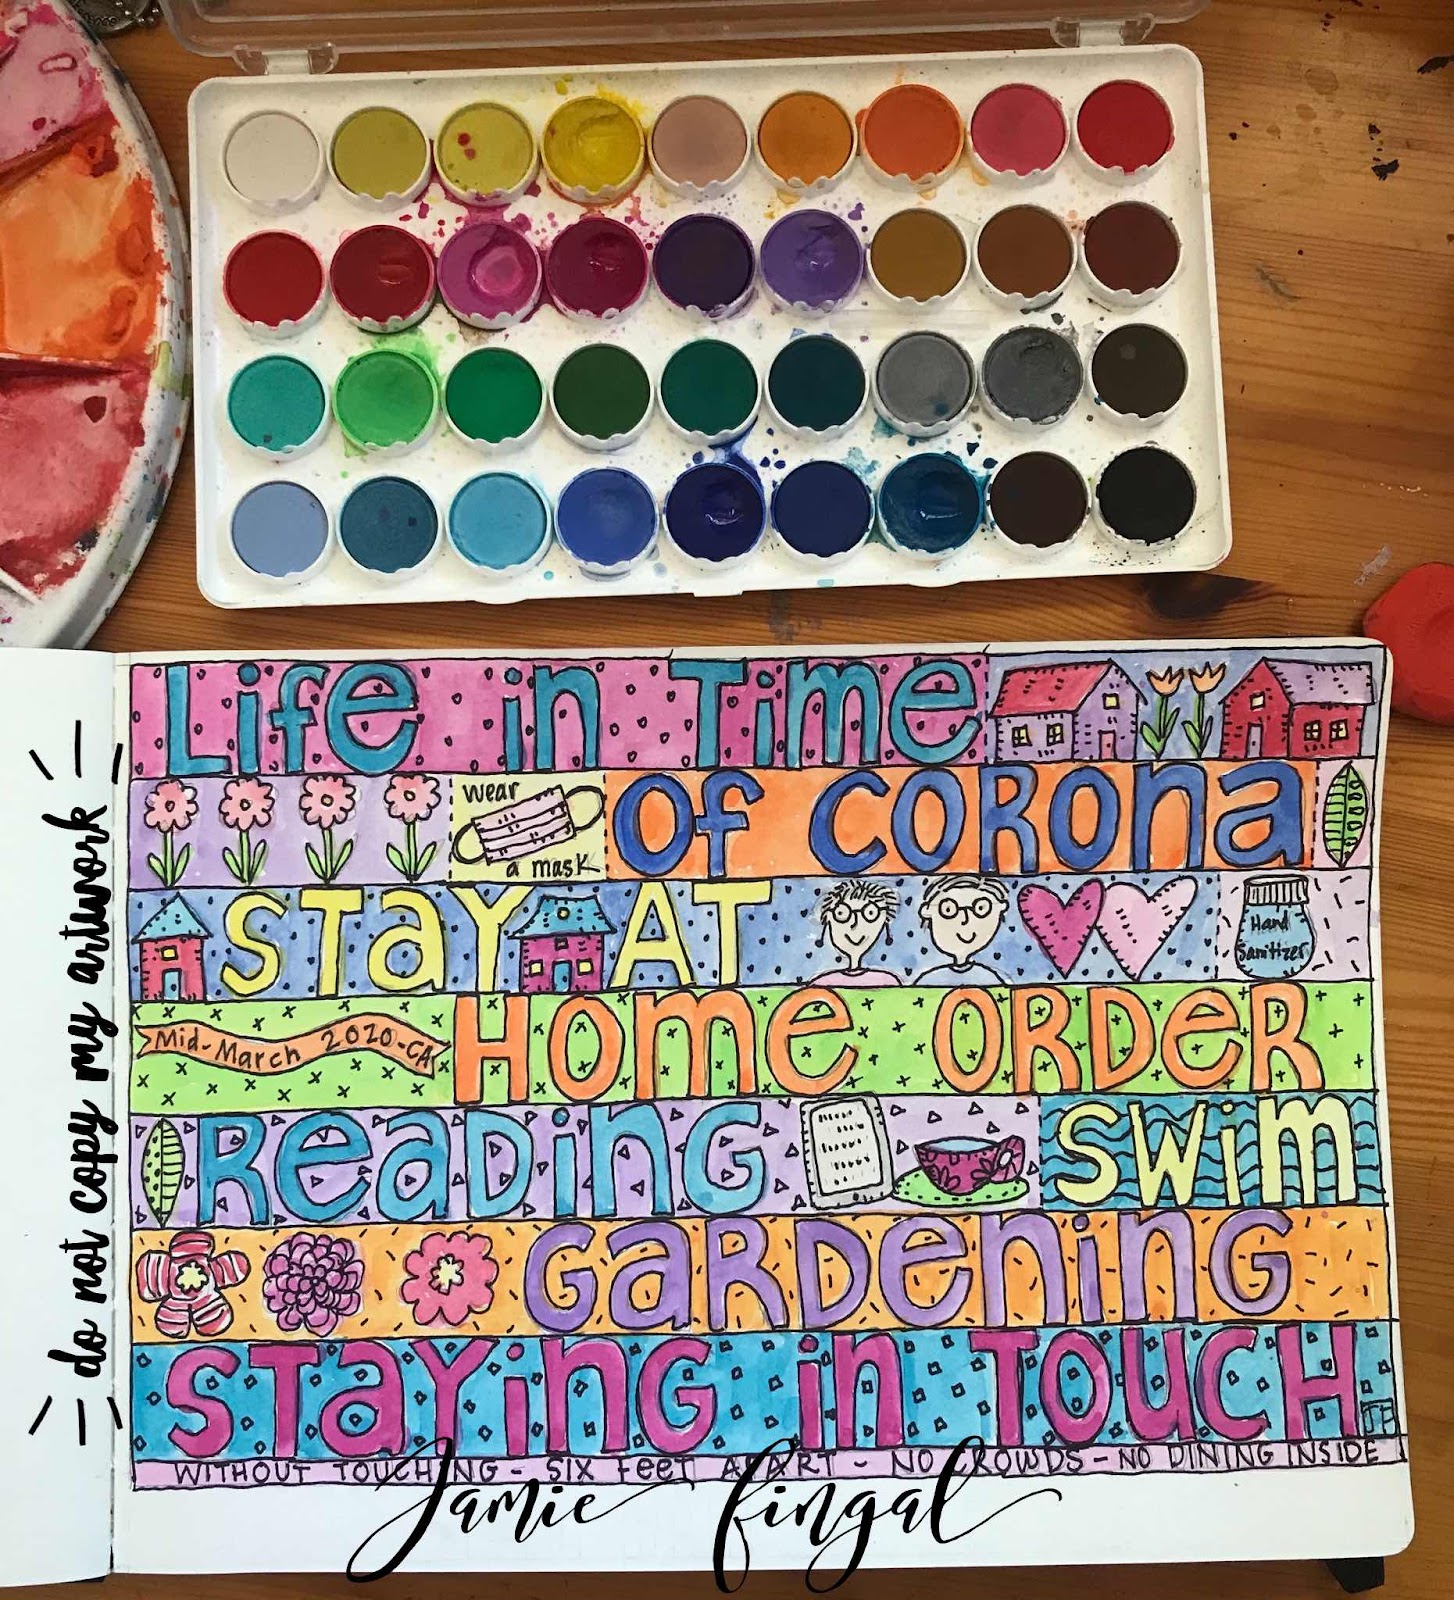 Life in Time
wear
a mask
of CORONA
STAY AT
Hand
Sanitizer
Mid-March 2020-CA
HOME ORDER
READING
SWIM
GARDENING
STAYING IN TOUCH
JF
WITHOUT TOUCHING - SIX FEET APART - NO CROWDS - NO DINING INSIDE
Jamie fingal
do not copy my artwork